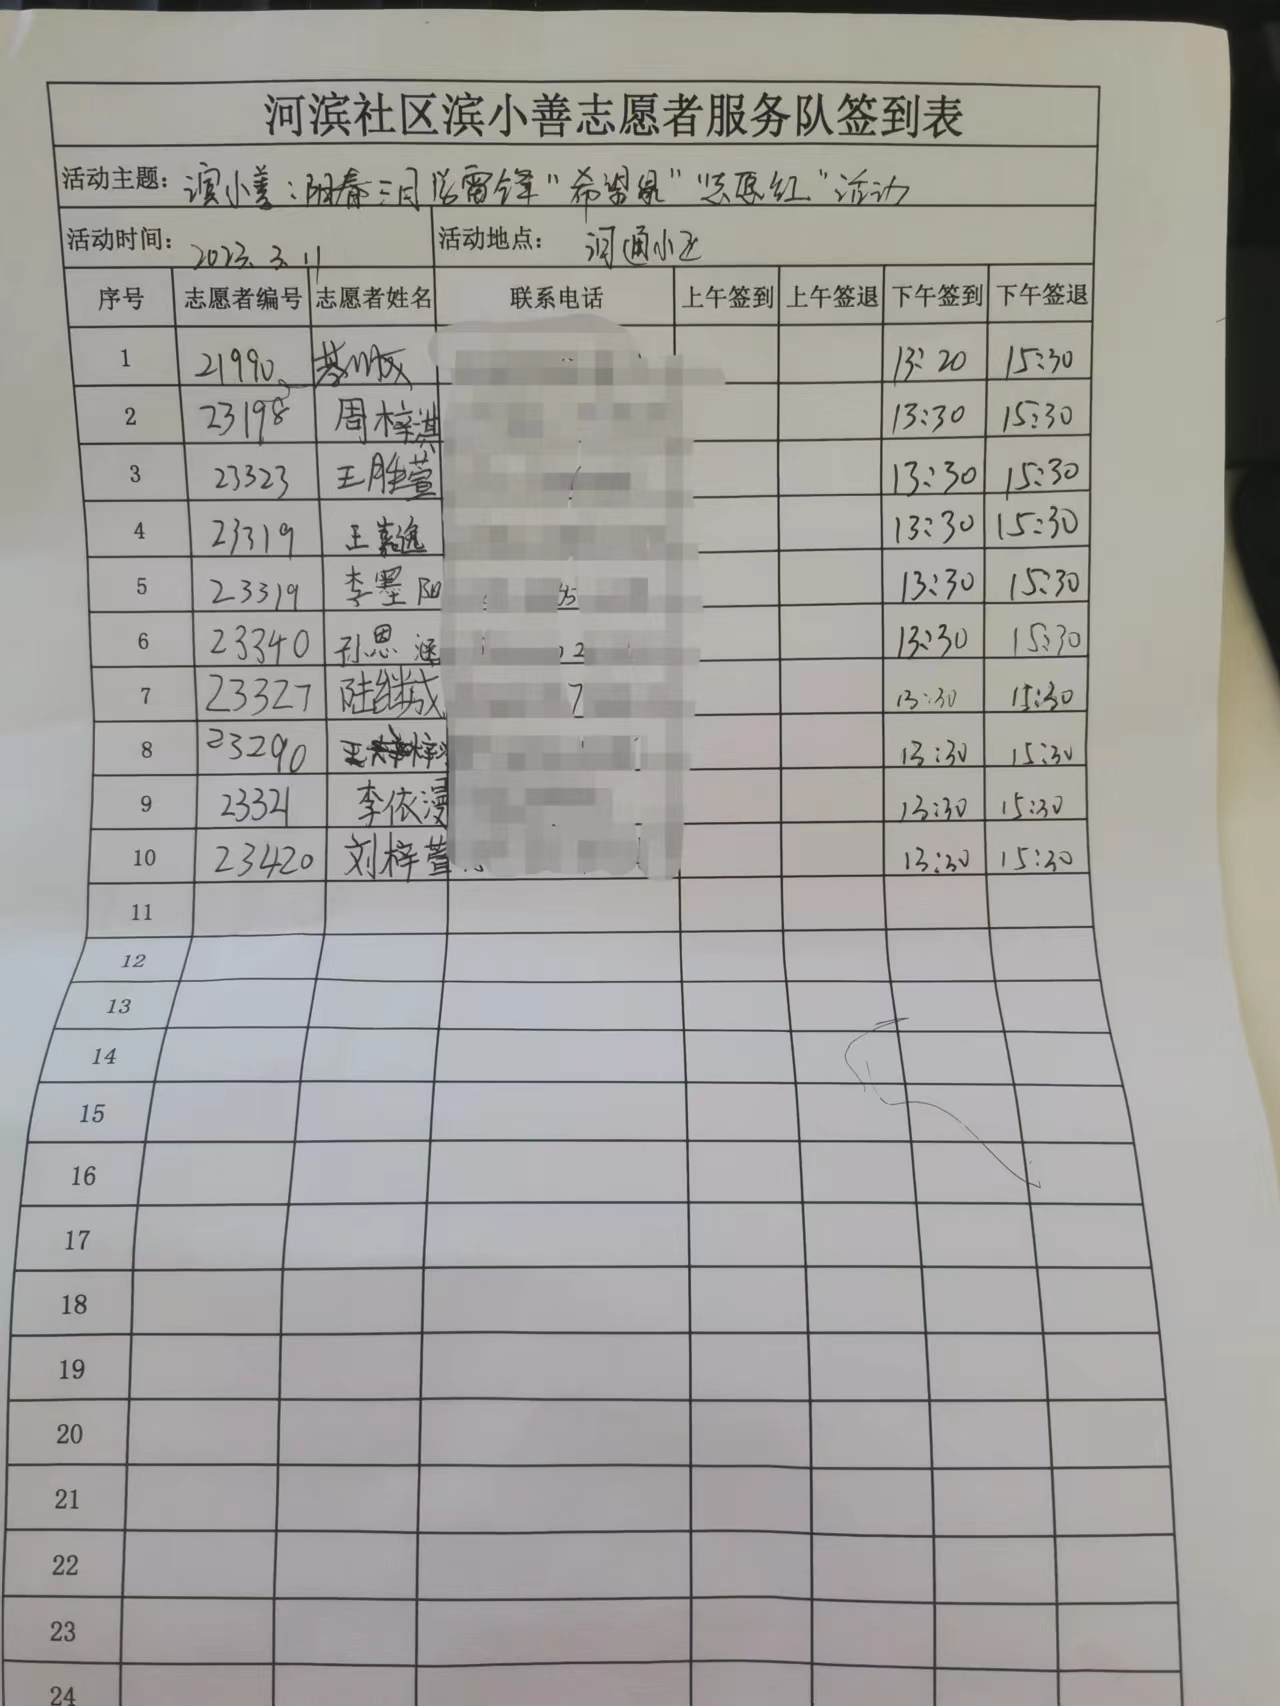 河滨社区滨小善志愿者服务队签到表
活动主题：滨小善：阳春三月学雷锋"希望泉""志愿红"活动
活动时间：2023.3.11 活动地点：河通小区
序号 志愿者编号 志愿者姓名 联系电话 上午签到 上午签退 下午签到 下午签退
1 21990 13:20 15:30
2 23198 周梓淇 13:30 15:30
3 23323 王胜萱 13:30 15:30
4 23319 王嘉逸 13:30 15:30
5 23319 李墨阳 13:30 15:30
6 23340 孙恩涵 13:30 15:30
7 23327 陆继成 13:30 15:30
8 23290 13:30 15:30
9 23321 李依漫 13:30 15:30
10 23420 刘梓萱 13:30 15:30
11
12
13
14
15
16
17
18
19
20
21
22
23
24